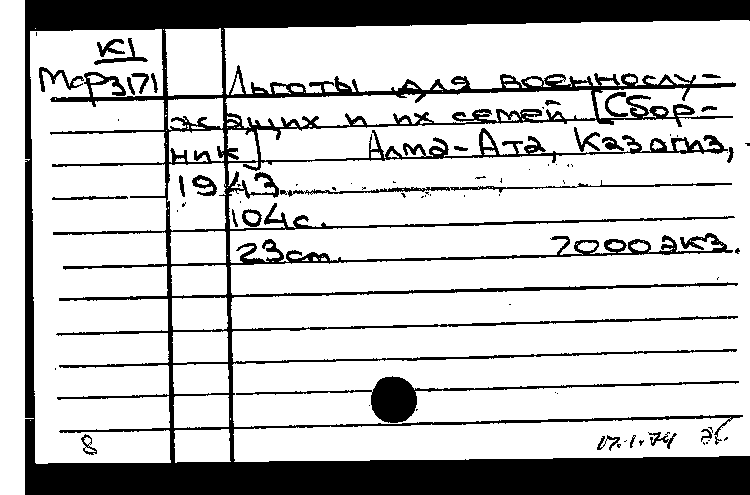 К1
Мср3171 Льготы для военнослу-
жащих и их семей. [Сбор-
ник]. Алма-Ата, Казогиз,
1943.
104с.
23cm. 7000экз.
8 17.1.74